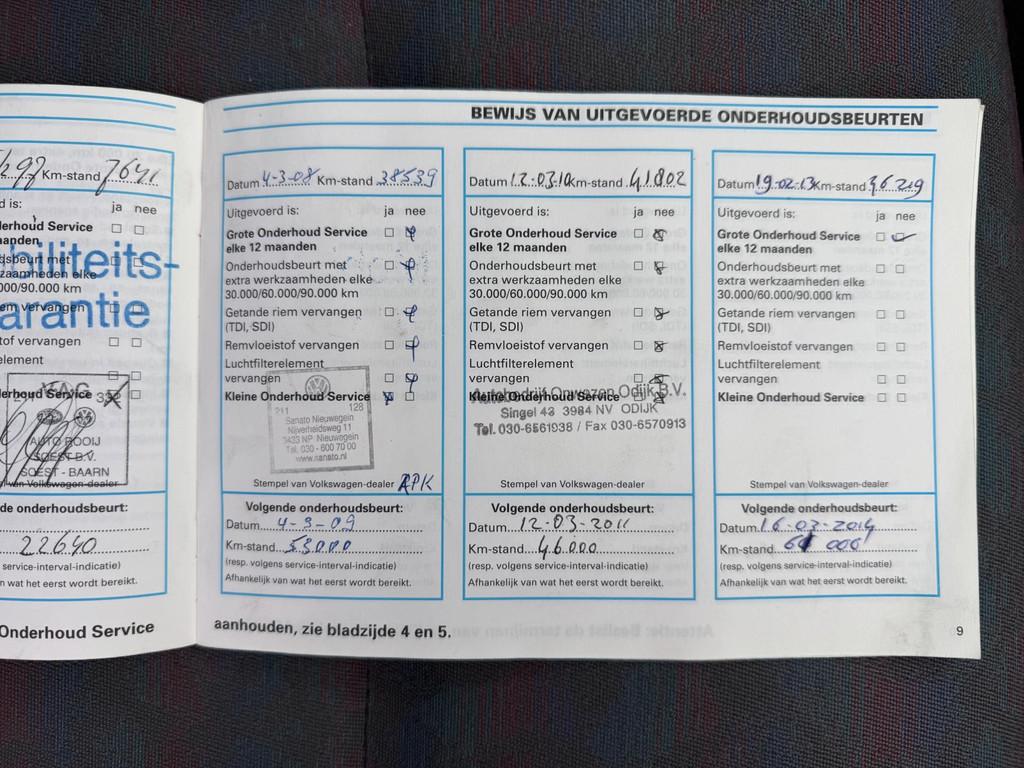 BEWIJS VAN UITGEVOERDE ONDERHOUDSBEURTEN
97 Km-stand 7641
d is: ja nee
erhoud Service
aanden,
biliteits-
dsbeurt met
zaamheden elke
000/90.000 km
arantie
iem vervangen
stof vervangen
element
erhoud Service
V.A.G
AUTO ROOIJ
SOEST B.V.
SOEST - BAARN
el van Volkswagen-dealer
de onderhoudsbeurt:
22640
service-interval-indicatie)
n wat het eerst wordt bereikt.
Onderhoud Service
Datum 4-3-08 Km-stand 38539
Uitgevoerd is: ja nee
Grote Onderhoud Service
elke 12 maanden
Onderhoudsbeurt met
extra werkzaamheden elke
30.000/60.000/90.000 km
Getande riem vervangen
(TDI, SDI)
Remvloeistof vervangen
Luchtfilterelement
vervangen
Kleine Onderhoud Service
211 128
Sanato Nieuwegein
Nijverheidsweg 11
3433 NP Nieuwegein
Tel. 030 - 600 70 00
www.sanato.nl
Stempel van Volkswagen-dealer APK
Volgende onderhoudsbeurt:
Datum 4-3-09
Km-stand 53000
(resp. volgens service-interval-indicatie)
Afhankelijk van wat het eerst wordt bereikt.
Datum 12.03.10 Km-stand 41802
Uitgevoerd is: ja nee
Grote Onderhoud Service
elke 12 maanden
Onderhoudsbeurt met
extra werkzaamheden elke
30.000/60.000/90.000 km
Getande riem vervangen
(TDI, SDI)
Remvloeistof vervangen
Luchtfilterelement
vervangen
Kleine Onderhoud Service
Autobedrijf Onwezen Odijk B.V.
Singel 43 3984 NV ODIJK
Tel. 030-6561938 / Fax 030-6570913
Stempel van Volkswagen-dealer
Volgende onderhoudsbeurt:
Datum 12-03-2011
Km-stand 46.000
(resp. volgens service-interval-indicatie)
Afhankelijk van wat het eerst wordt bereikt.
Datum 19-02-13 Km-stand 46219
Uitgevoerd is: ja nee
Grote Onderhoud Service
elke 12 maanden
Onderhoudsbeurt met
extra werkzaamheden elke
30.000/60.000/90.000 km
Getande riem vervangen
(TDI, SDI)
Remvloeistof vervangen
Luchtfilterelement
vervangen
Kleine Onderhoud Service
Stempel van Volkswagen-dealer
Volgende onderhoudsbeurt:
Datum 16-03-2014
Km-stand 61 000
(resp. volgens service-interval-indicatie)
Afhankelijk van wat het eerst wordt bereikt.
aanhouden, zie bladzijde 4 en 5.
9